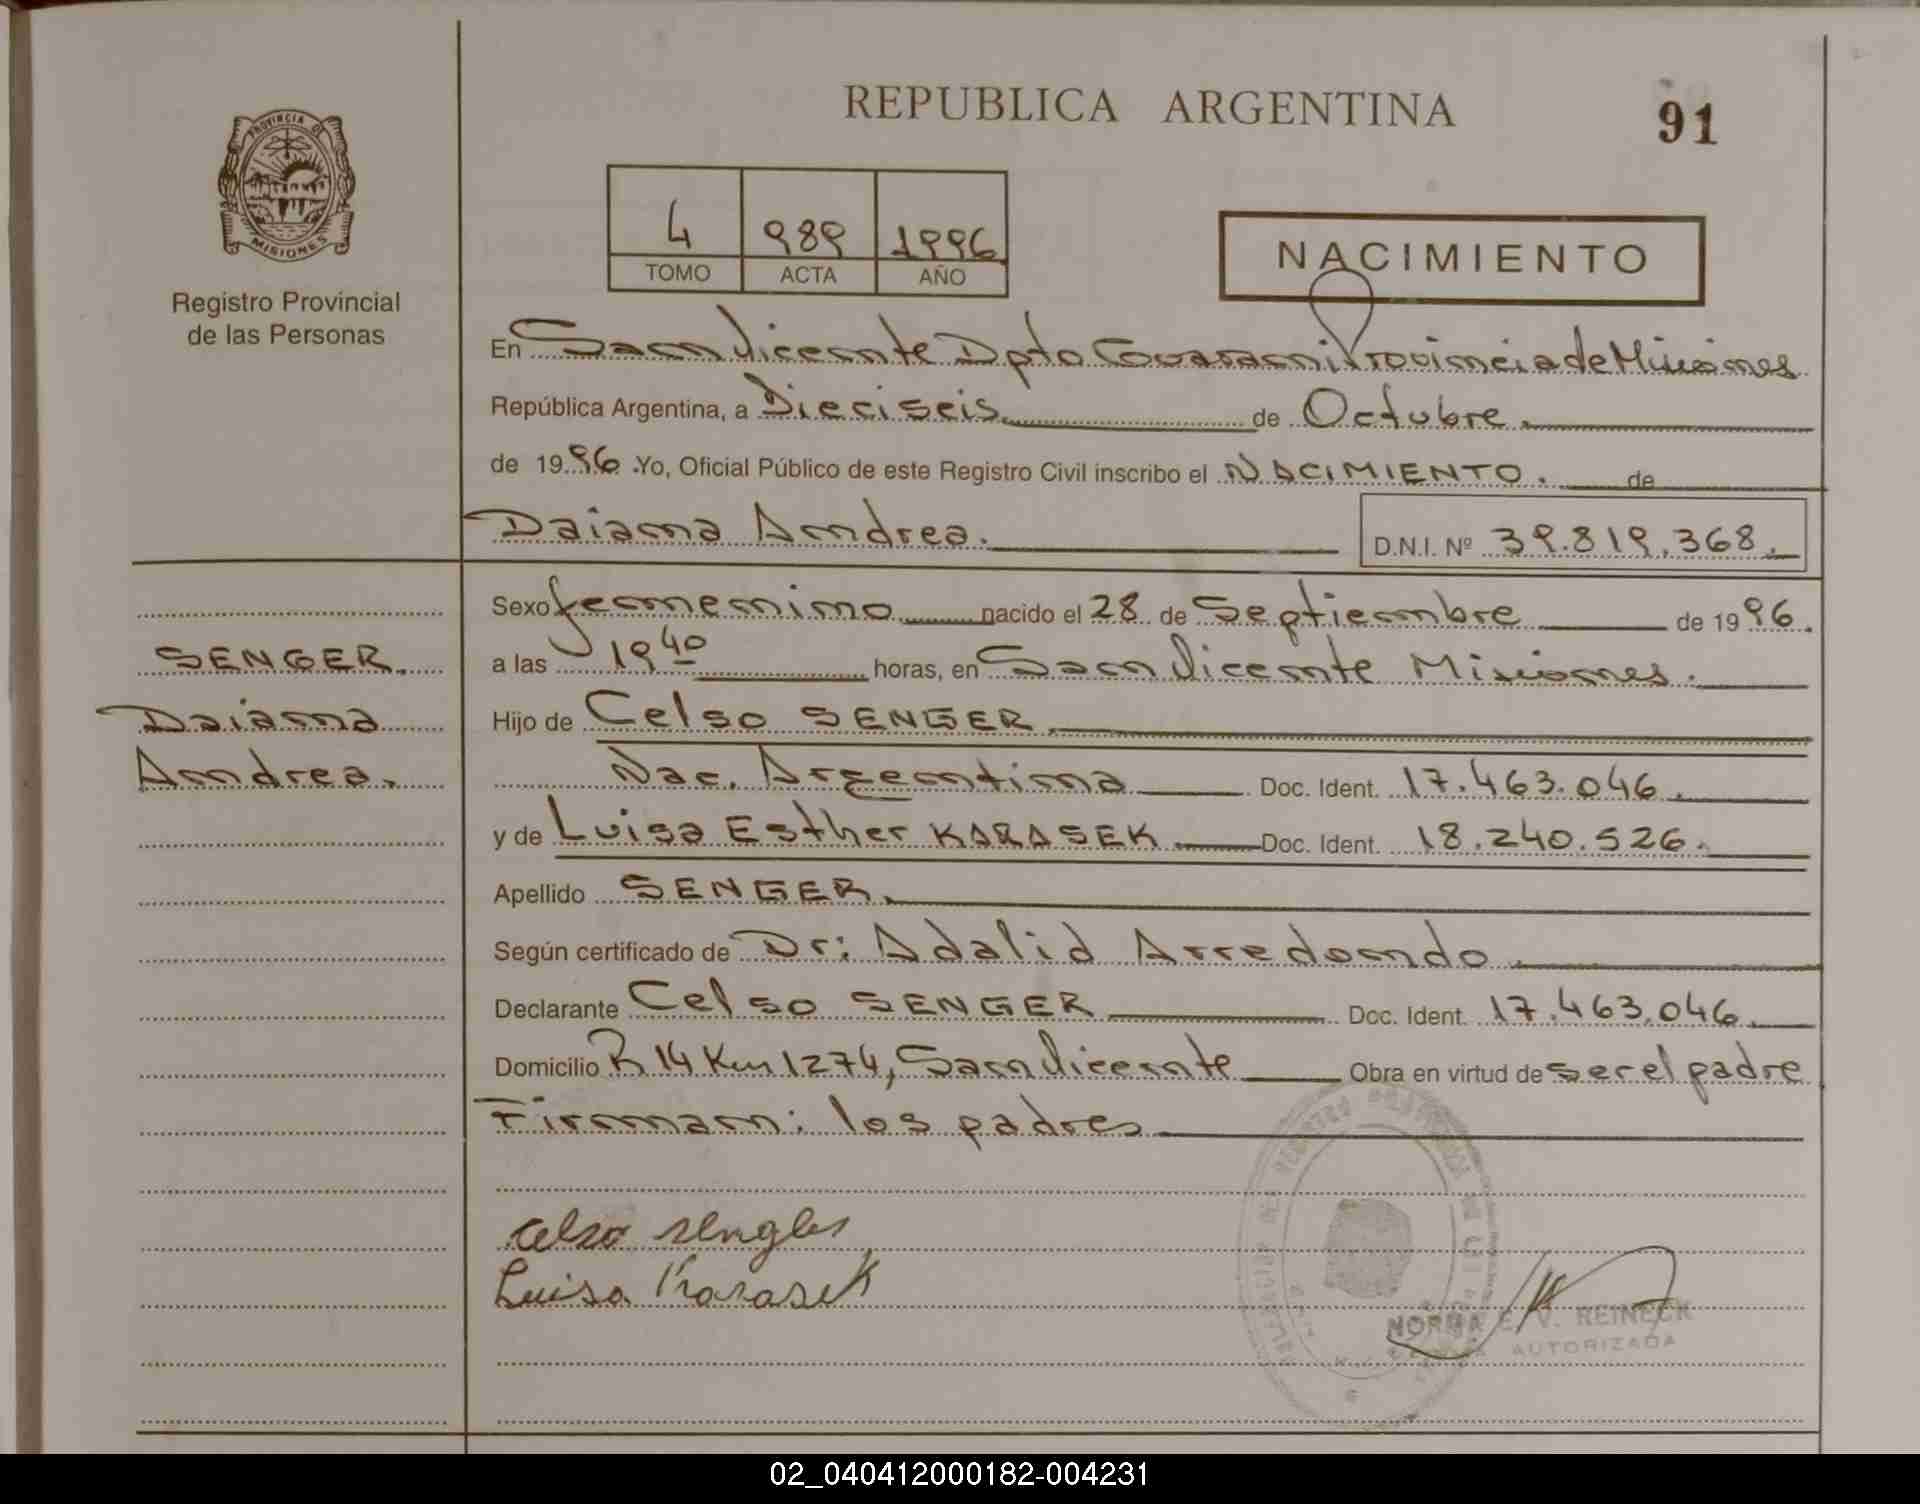 REPUBLICA ARGENTINA
91
PROVINCIA DE
MISIONES
Registro Provincial
de las Personas
4 989 1996
TOMO ACTA AÑO
NACIMIENTO
En San Vicente Dpto Guarani Provincia de Misiones
República Argentina, a Dieciseis de Octubre
de 1996 .Yo, Oficial Público de este Registro Civil inscribo el NACIMIENTO. de
Daiana Andrea. D.N.I. Nº 39.819.368.
SENGER.
Daiana
Andrea.
Sexo femenino nacido el 28 de Septiembre de 1996.
a las 19 40 horas, en San Vicente Misiones.
Hijo de Celso SENGER
Nac. Argentina Doc. Ident. 17.463.046.
y de Luisa Esther KARASEK Doc. Ident. 18.240.526.
Apellido SENGER.
Según certificado de Dr: Adalid Arredondo
Declarante Celso SENGER Doc. Ident. 17.463.046.
Domicilio R 14 Km 1274, San Vicente Obra en virtud de ser el padre
Firman: los padres
Celso Senger
Luisa Karasek
NORMA E. V. REINECK
AUTORIZADA
02_040412000182-004231